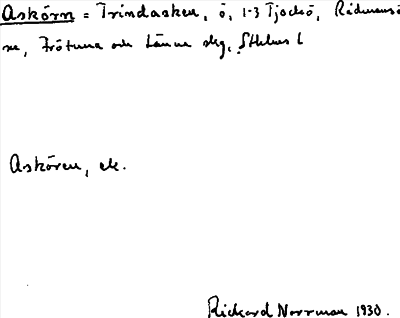 Askörn = Trindasken, ö, 1-3 Tjockö, Rådmansö
sn, Frötuna och Länna skg, Sthlms l
Askören, ek.
Rickard Norrman 1930.